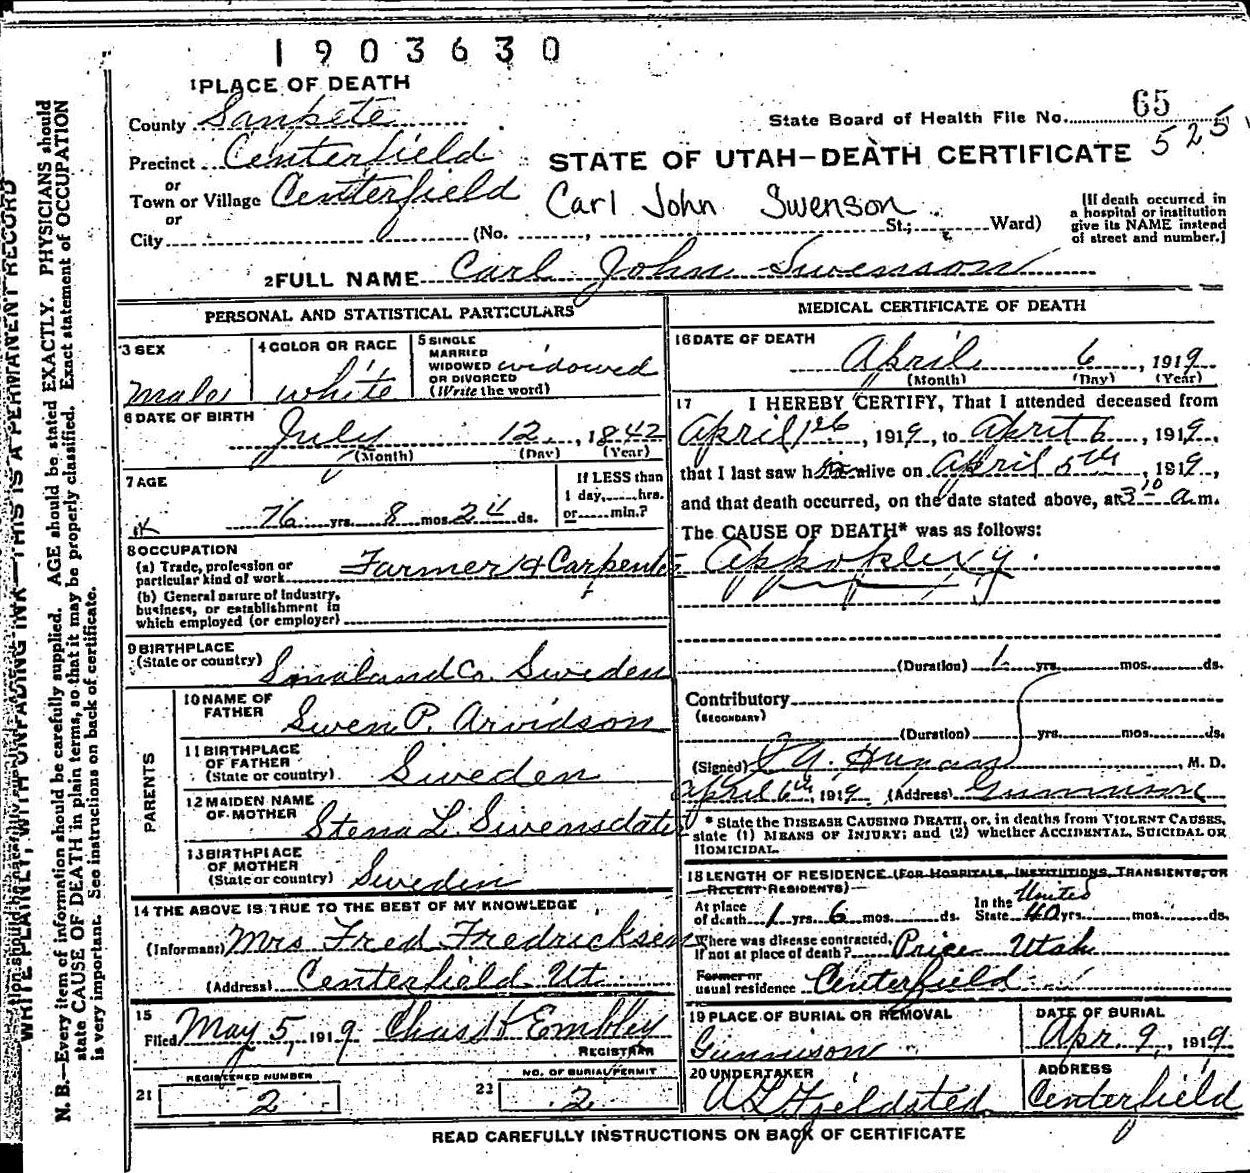 1903630
1 PLACE OF DEATH
County Sanpete
State Board of Health File No. 65
525
Precinct Centerfield
STATE OF UTAH—DEATH CERTIFICATE
or
Town or Village Centerfield
Carl John Swenson
or
City (No. , St.; Ward)
[If death occurred in
a hospital or institution
give its NAME instead
of street and number.]
2 FULL NAME Carl John Swenson
PERSONAL AND STATISTICAL PARTICULARS
3 SEX
Male
4 COLOR OR RACE
white
5 SINGLE
MARRIED
WIDOWED
OR DIVORCED
(Write the word)
widowed
6 DATE OF BIRTH
July 12, 1842
(Month) (Day) (Year)
7 AGE
76 yrs. 8 mos. 24 ds.
If LESS than
1 day, hrs.
or min.?
8 OCCUPATION
(a) Trade, profession or
particular kind of work Farmer & Carpenter
(b) General nature of industry,
business, or establishment in
which employed (or employer)
9 BIRTHPLACE
(State or country) Smaland Co. Sweden
PARENTS
10 NAME OF
FATHER Swen P. Arvidson
11 BIRTHPLACE
OF FATHER
(State or country) Sweden
12 MAIDEN NAME
OF MOTHER Stena L. Swensdater
13 BIRTHPLACE
OF MOTHER
(State or country) Sweden
14 THE ABOVE IS TRUE TO THE BEST OF MY KNOWLEDGE
(Informant) Mrs Fred Fredricksen
(Address) Centerfield Ut.
15
Filed May 5, 1919 Chas H Embley
REGISTRAR
REGISTERED NUMBER
21 2
NO. OF BURIAL PERMIT
22 2
MEDICAL CERTIFICATE OF DEATH
16 DATE OF DEATH
April 6, 1919
(Month) (Day) (Year)
17 I HEREBY CERTIFY, That I attended deceased from
April 1st, 1919, to April 6, 1919,
that I last saw him alive on April 5th, 1919,
and that death occurred, on the date stated above, at 3 10 a.m.
The CAUSE OF DEATH* was as follows:
Appoplexy.
(Duration) 1 yrs. mos. ds.
Contributory
(SECONDARY)
(Duration) yrs. mos. ds.
(Signed) M. D.
April 6th, 1919 (Address) Gunnison
* State the DISEASE CAUSING DEATH, or, in deaths from VIOLENT CAUSES,
state (1) MEANS OF INJURY; and (2) whether ACCIDENTAL, SUICIDAL OR
HOMICIDAL.
18 LENGTH OF RESIDENCE (FOR HOSPITALS, INSTITUTIONS, TRANSIENTS, OR
RECENT RESIDENTS)—
At place
of death 1 yrs. 6 mos. ds. In the United State 40 yrs. mos. ds.
Where was disease contracted,
if not at place of death? Price Utah
Former or
usual residence Centerfield
19 PLACE OF BURIAL OR REMOVAL
Gunnison
DATE OF BURIAL
Apr. 9, 1919
20 UNDERTAKER
A L Fjeldsted
ADDRESS
Centerfield
READ CAREFULLY INSTRUCTIONS ON BACK OF CERTIFICATE
WRITE PLAINLY, WITH UNFADING INK—THIS IS A PERMANENT RECORD
N. B.—Every item of information should be carefully supplied. AGE should be stated EXACTLY. PHYSICIANS should
state CAUSE OF DEATH in plain terms, so that it may be properly classified. Exact statement of OCCUPATION
is very important. See instructions on back of certificate.